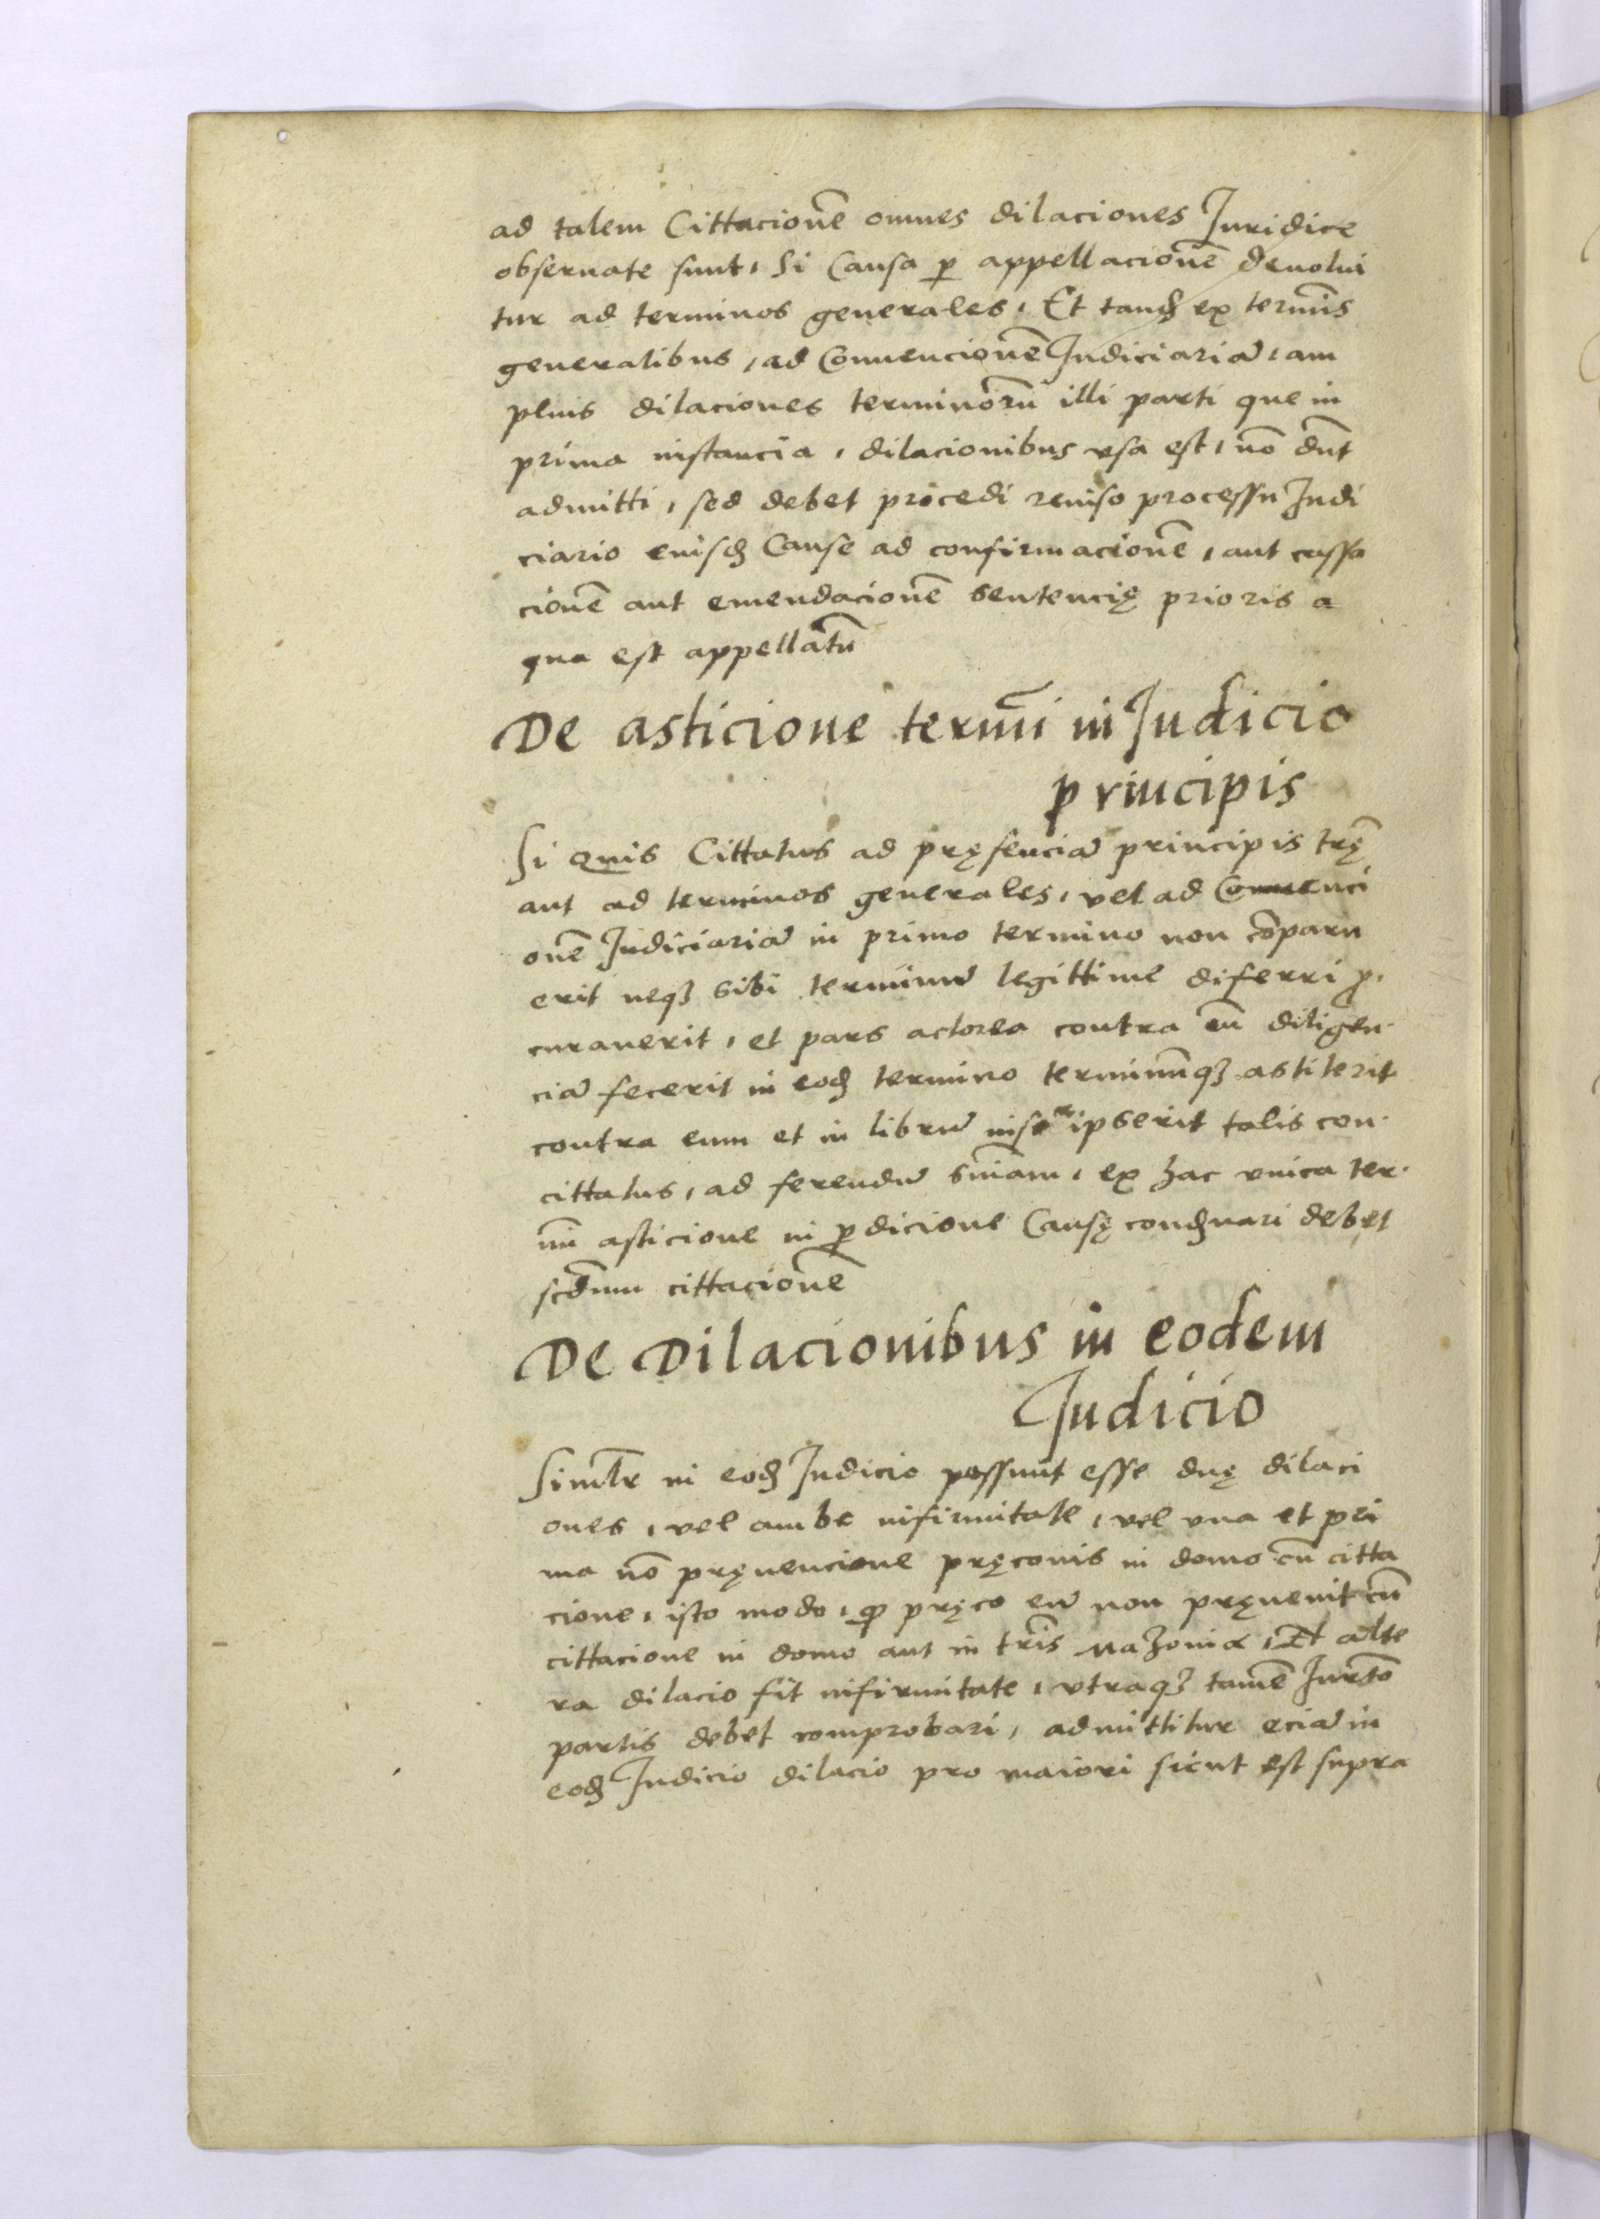 ad talem Cittacionē omnes dilaciones Juridice
obseruate sunt, Si Causa ꝑ appellacionē deuolui
tur ad terminos generales, Et tandē ex termīs
generalibus, ad Conuencionē Judiciariā, am
plius dilaciones terminorū illi parti que in
prima instancia, dilacionibus vsa est, nō dn̄t
admitti, sed debet procedi reuiso processu Judi
ciario eiusdē Cause ad confirmacionē, aut cassa
cionē aut emendacionē sentencię prioris a
qua est appellatū
De asticione termī in Judicio
principis
Si quis Cittatus ad pręsenciā principis trę̄
aut ad terminos generales, vel ad Conuenci
onē Judiciariā in primo termino non cōparu
erit neqꝫ sibi terminū legittime diferri ꝓ
curauerit, et pars actorea contra eū diligen
ciā fecerit in eodē termino terminūqꝫ astiterit
contra eum et in librū inscripserit talis con
cittatus, ad ferendū sniam, ex hac vnica ter
mī asticione in ꝑdicione Causę condēnari debet
scdmum cittacionē
De Dilacionibus in eodem
Judicio
Similr in eodē Judicio possunt esse duę dilaci
ones, vel ambe infirmitate, vel vna et pri
ma nō pręuencione pręconis in domo cū citta
cione, isto modo, ꝙ pręco eū non pręuenit cū
cittacione in domo aut in tr̄is Mazouiæ, Et alte
ra dilacio fit infirmitate, vtraqꝫ tamē Jurtō
partis debet comprobari, admittitur eciā in
eodē Judicio dilacio pro maiori sicut est supra